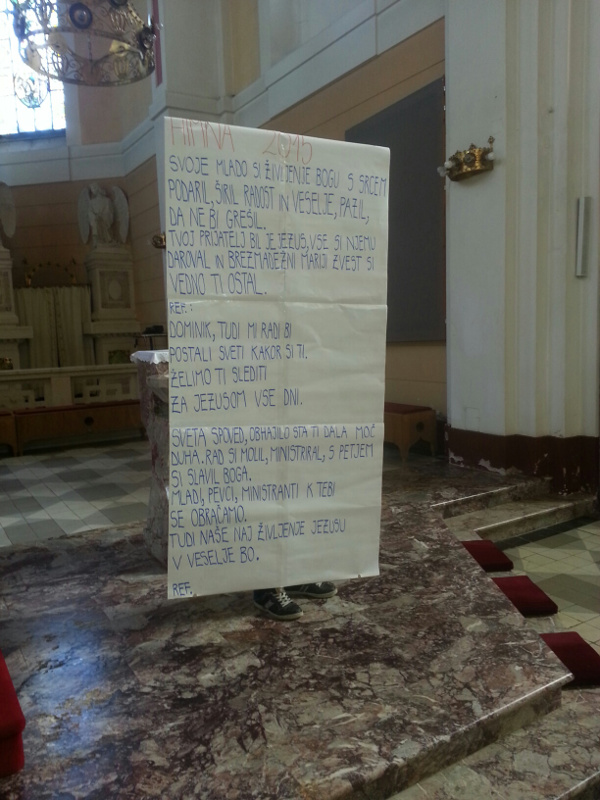 HIMNA 2015
SVOJE MLADO SI ŽIVLJENJE BOGU S SRCEM
PODARIL, ŠIRIL RADOST IN VESELJE, PAZIL,
DA NE BI GREŠIL.
TVOJ PRIJATELJ BIL JE JEZUS, VSE SI NJEMU
DAROVAL IN BREZMADEŽNI MARIJI ZVEST SI
VEDNO TI OSTAL.
REF.:
DOMINIK, TUDI MI RADI BI
POSTALI SVETI KAKOR SI TI.
ŽELIMO TI SLEDITI
ZA JEZUSOM VSE DNI.
SVETA SPOVED, OBHAJILO STA TI DALA MOČ
DUHA. RAD SI MOLIL, MINISTRIRAL, S PETJEM
SI SLAVIL BOGA.
MLADI, PEVCI, MINISTRANTI K TEBI
SE OBRAČAMO.
TUDI NAŠE NAJ ŽIVLJENJE JEZUSU
V VESELJE BO.
REF.